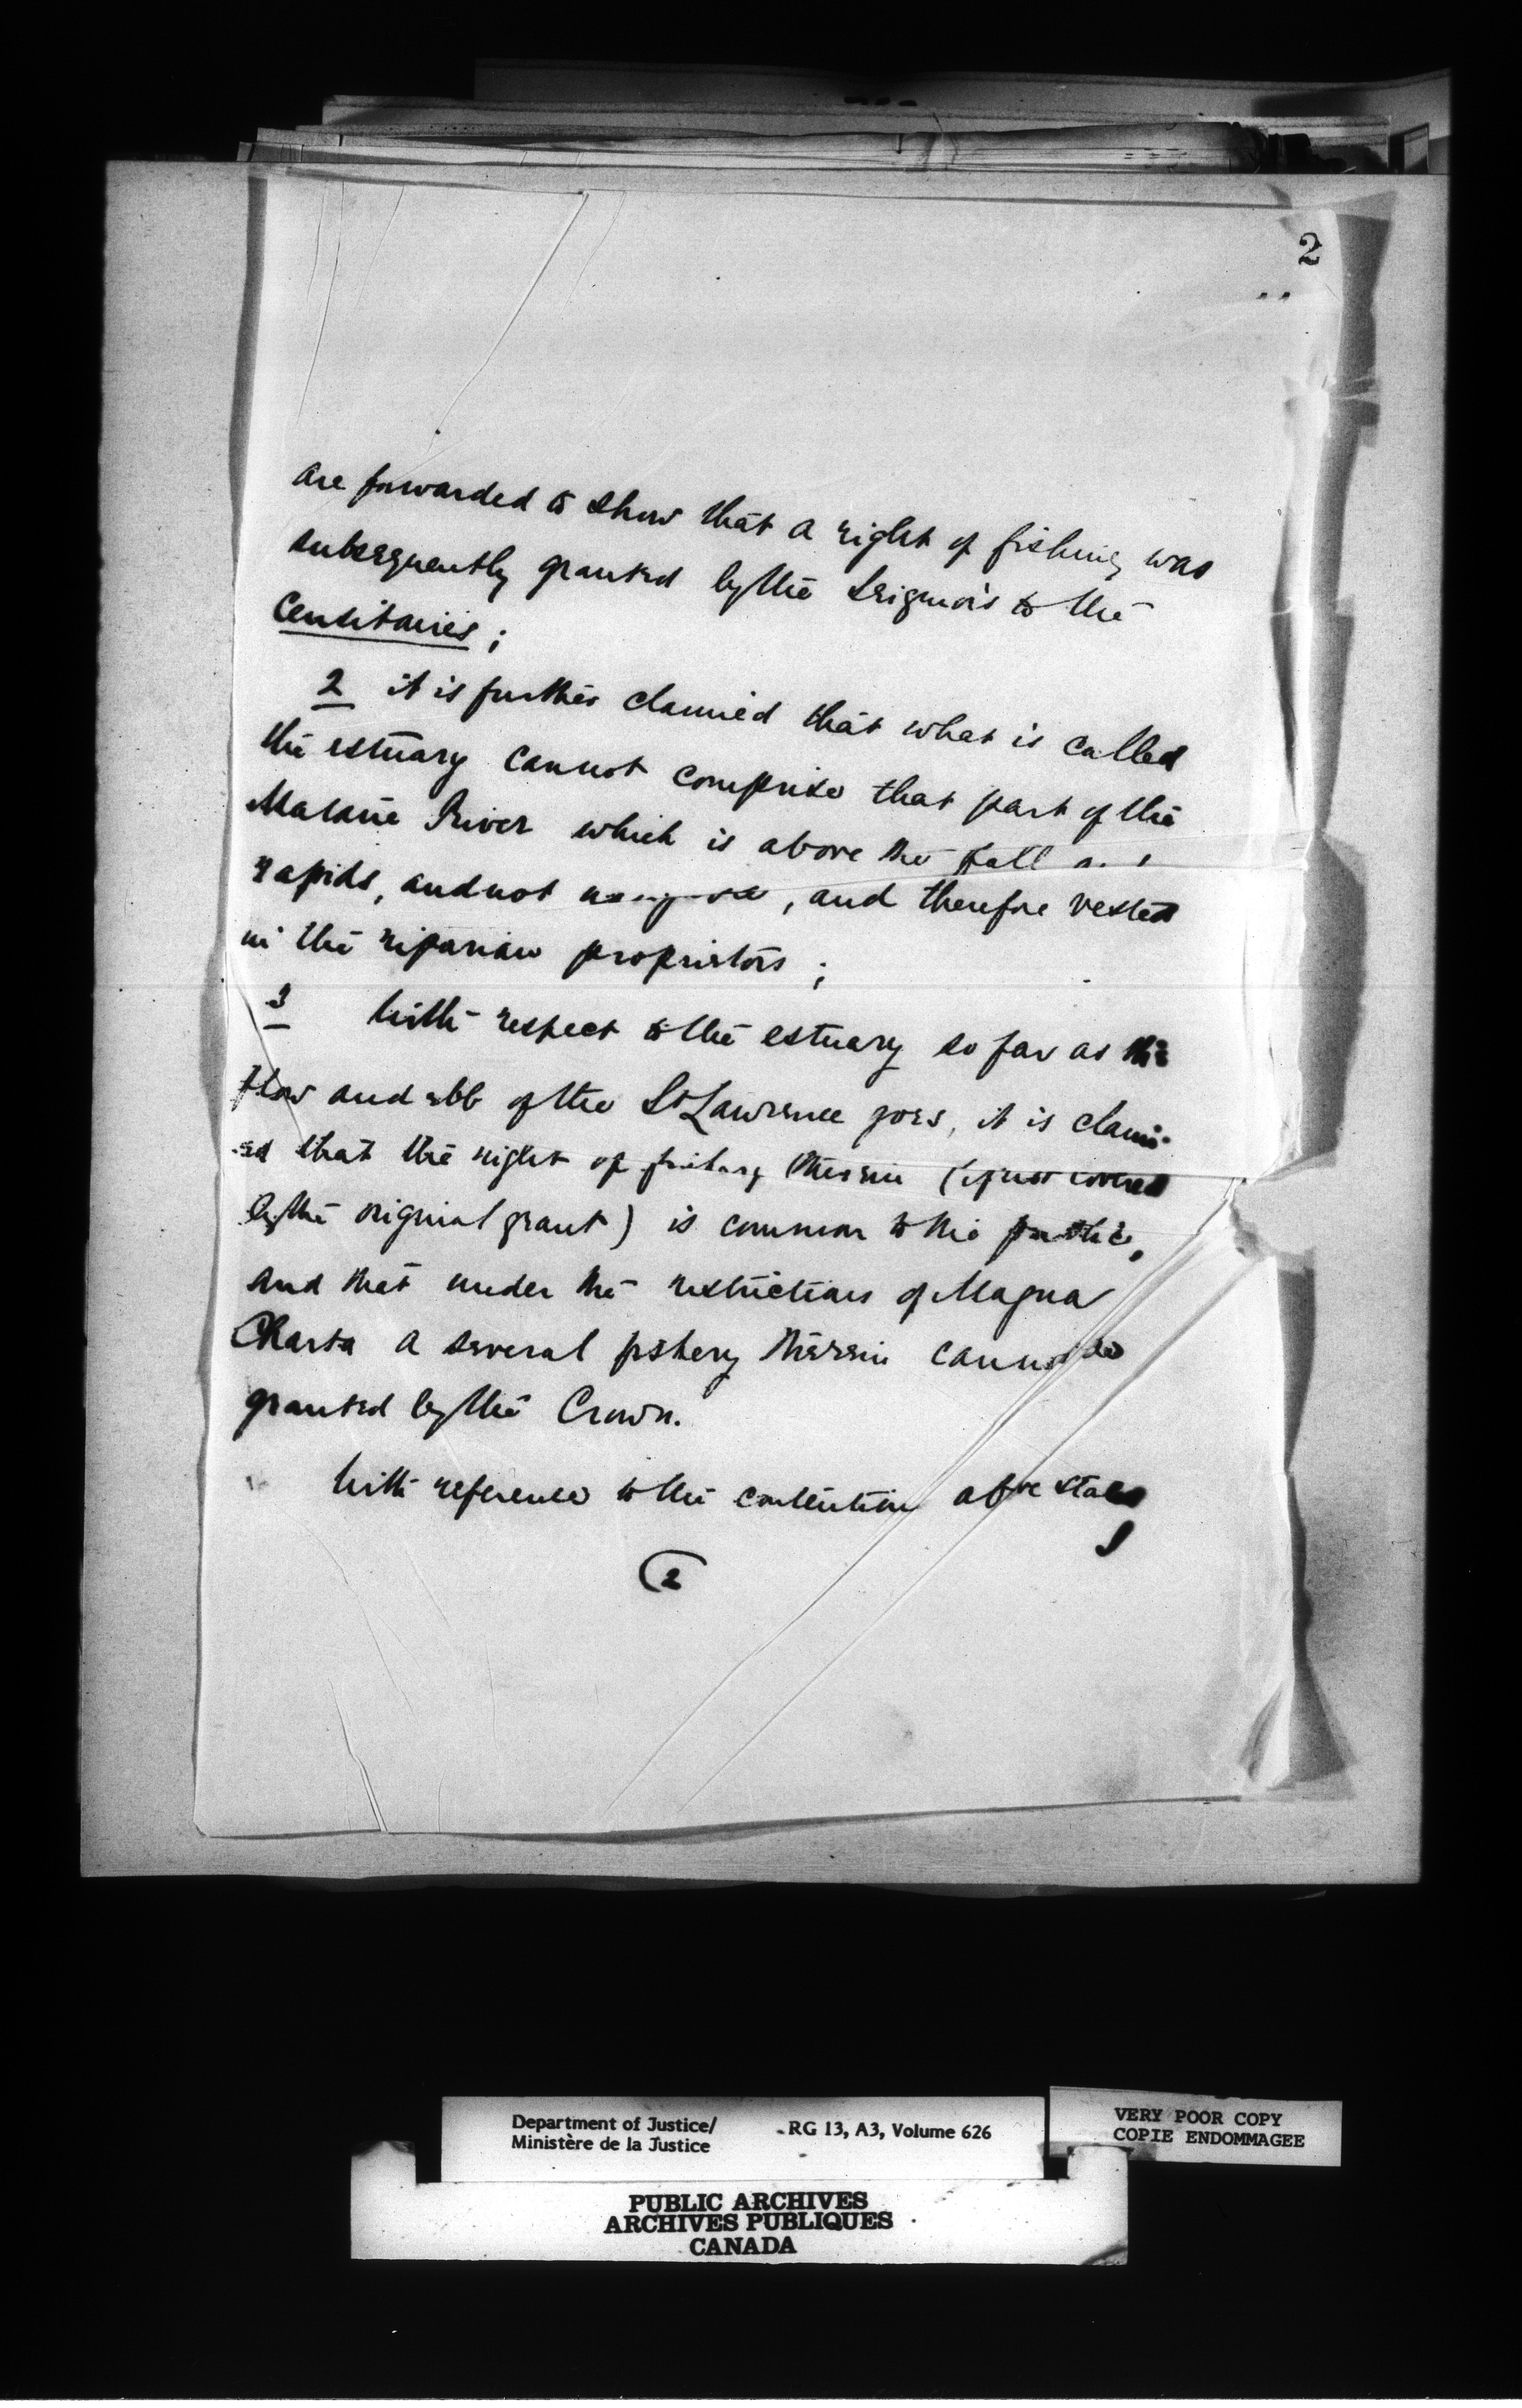 2
are forwarded to show that a right of fishing was
subsequently granted by the Seignors to the
Censitaires ;
2 it is further claimed that what is called
the estuary cannot comprise that part of the
Matane River which is above the fall
rapids, and not , and therefore vested
in the riparian proprietors ;
3 With respect to the estuary so far as the
flow and ebb of the St Lawrence goes, it is claim-
ed that the right of fishing therein (if not covered
by the original grant) is common to the public,
and that under the restrictions of Magna
Charta a several fishery therein cannot be
granted by the Crown.
With reference to the contention above stated
2
Department of Justice/
Ministère de la Justice
RG 13, A3, Volume 626
VERY POOR COPY
COPIE ENDOMMAGEE
PUBLIC ARCHIVES
ARCHIVES PUBLIQUES
CANADA